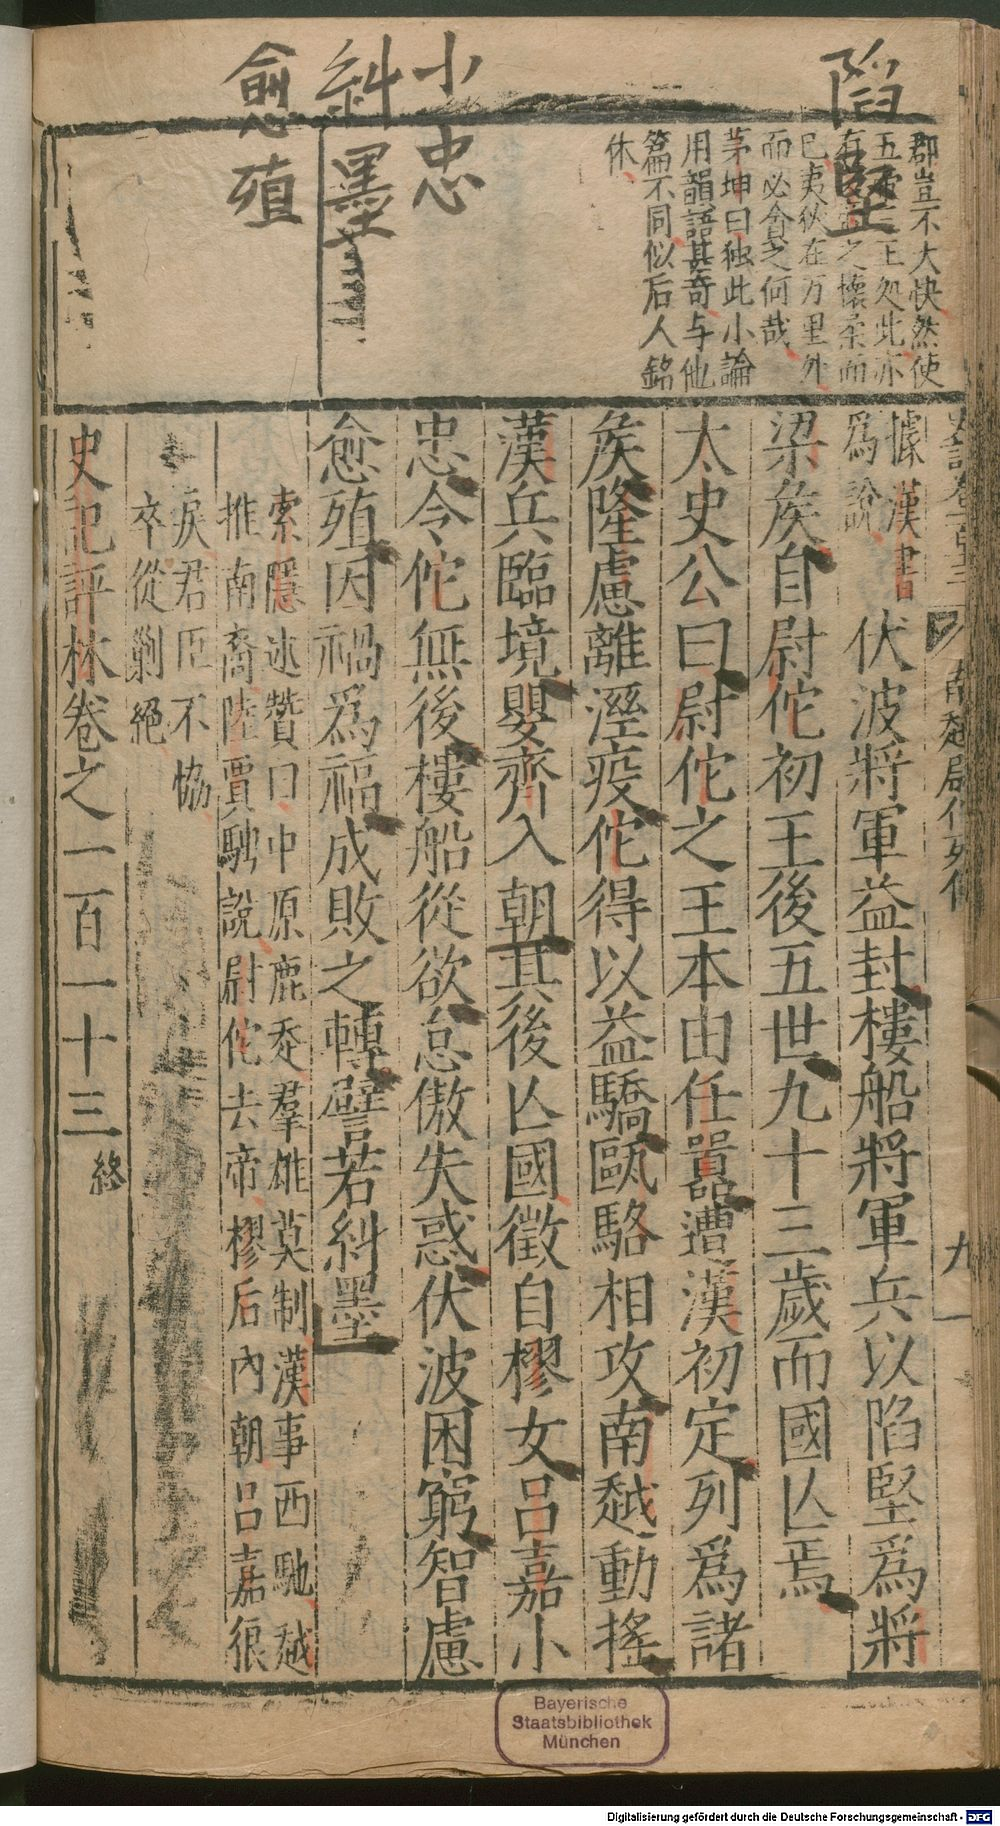 陷堅
小忠
糾墨
愈殖
郡豈不大快然使
五帝三王処此亦
之懷柔而
已夷狄在万里外
而必貪之何哉
茅坤曰独此小論
用韻語甚奇与他
篇不同似后人銘
休
九
據漢書
爲說
伏波將軍益封樓船將軍兵以陷堅爲將
梁矦自尉佗初王後五世九十三歲而國亾焉
太史公曰尉佗之王本由任囂遭漢初定列爲諸
矦隆慮離溼疫佗得以益驕甌駱相攻南越動搖
漢兵臨境嬰齊入朝其後亾國徵自樛女呂嘉小
忠令佗無後樓船從欲怠傲失惑伏波困窮智慮
愈殖因禍爲福成敗之轉譬若糾墨
索隱述贊曰中原鹿走羣雄莫制漢事西馳越
推南裔陸賈馳說尉佗去帝樛后內朝呂嘉狠
戾君臣不恊
卒從剿絕
史記評林卷之一百一十三終
Bayerische
Staatsbibliothek
München
Digitalisierung gefördert durch die Deutsche Forschungsgemeinschaft - DFG